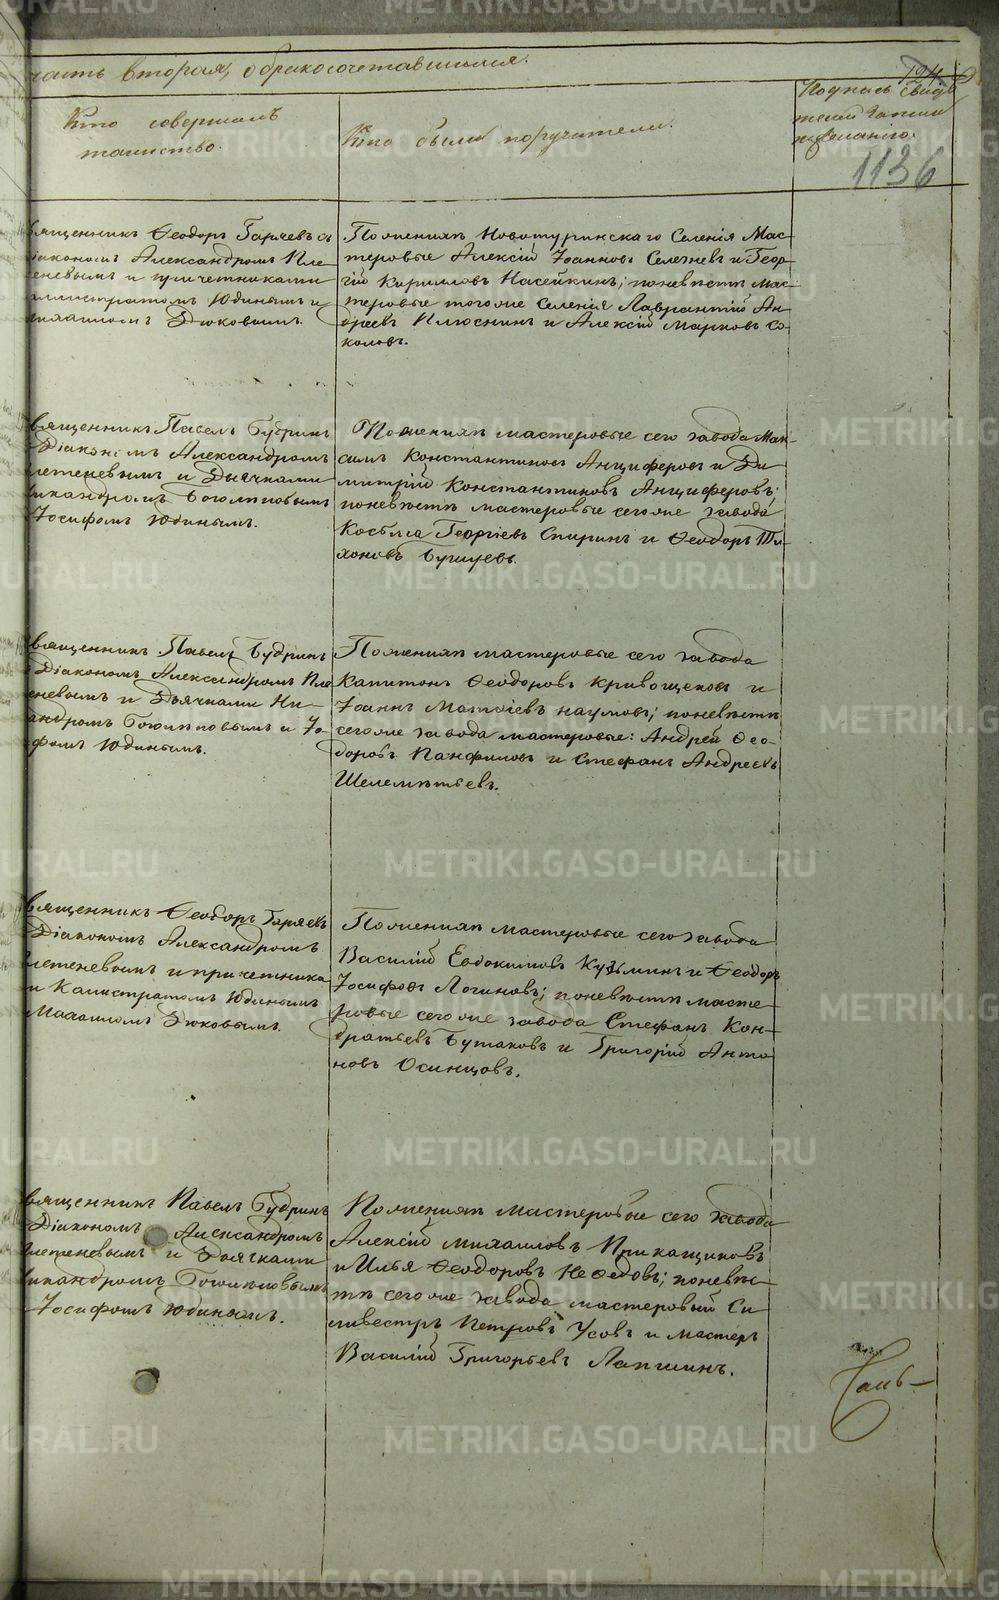 часть вторая, о бракосочетавшихся.
124.
Кто совершалъ
таинство.
Кто были поручители.
Подпись свидѣ
телей
по желанію.
1136
вященникъ Ѳеодоръ Гаряевъ съ
іакономъ Александромъ Пле
еневымъ и причетниками
аллистратомъ Юдинымъ и
ихаиломъ Дюковымъ.
По женихѣ Новотуринскаго Селенія Мас-
теровые Алексій Іоанновъ Селезневъ и Геор-
гій Кириловъ Насейкинъ; по невѣстѣ мас-
теровые того же селенія Лаврентій Ан-
дреевъ Плюснинъ и Алексій Марковъ Со-
коловъ.
вященникъ Павелъ Будринъ
Діакономъ Александромъ
летеневымъ и Дьячками
икандромъ Боголѣповымъ
Іосифомъ Юдинымъ.
По женихѣ мастеровые сего завода Мак-
симъ Константиновъ Анциферовъ и Ди-
митрій Константиновъ Анциферовъ;
по невѣстѣ мастеровые сего же завода
Косьма Георгіевъ Спиринъ и Ѳеодоръ Ти-
хоновъ
вященникъ Павелъ Будринъ
Діакономъ Александромъ Пле
еневымъ и Дьячками Ни-
андромъ Боголѣповымъ и Іо-
фомъ Юдинымъ.
По женихѣ мастеровые сего завода
Капитонъ Ѳеодоровъ Кривощековъ и
Іоаннъ Матѳіевъ Наумовъ; по невѣстѣ
сего же завода мастеровые: Андрей Ѳео-
доровъ Панфиловъ и Стефанъ Андреевъ
Шелементьевъ.
вященникъ Ѳеодоръ Гаряевъ
Діакономъ Александромъ
летеневымъ и причетника
и Каллистратомъ Юдинымъ
Михаиломъ Дюковымъ.
По женихѣ мастеровые сего завода
Василій Евдокимовъ Кузьминъ и Ѳеодоръ
Іосифовъ Логиновъ; по невѣстѣ масте-
ровые сего же завода Стефанъ Кон-
дратьевъ Бутаковъ и Григорій Анто
новъ Осинцовъ.
вященникъ Павелъ Будринъ
Діакономъ Александромъ
летеневымъ и Дьячками
икандромъ Боголѣповымъ
Іосифомъ Юдинымъ.
По женихѣ мастеровые сего завода
Алексій Михаиловъ Прикащиковъ
и Илья Ѳеодоровъ Неѳедовъ; по невѣс-
тѣ сего же завода мастеровый Си
ливестръ Петровъ Усовъ и мастеръ
Василій Григорьевъ Лапшинъ.
METRIKI.GASO-URAL.RU